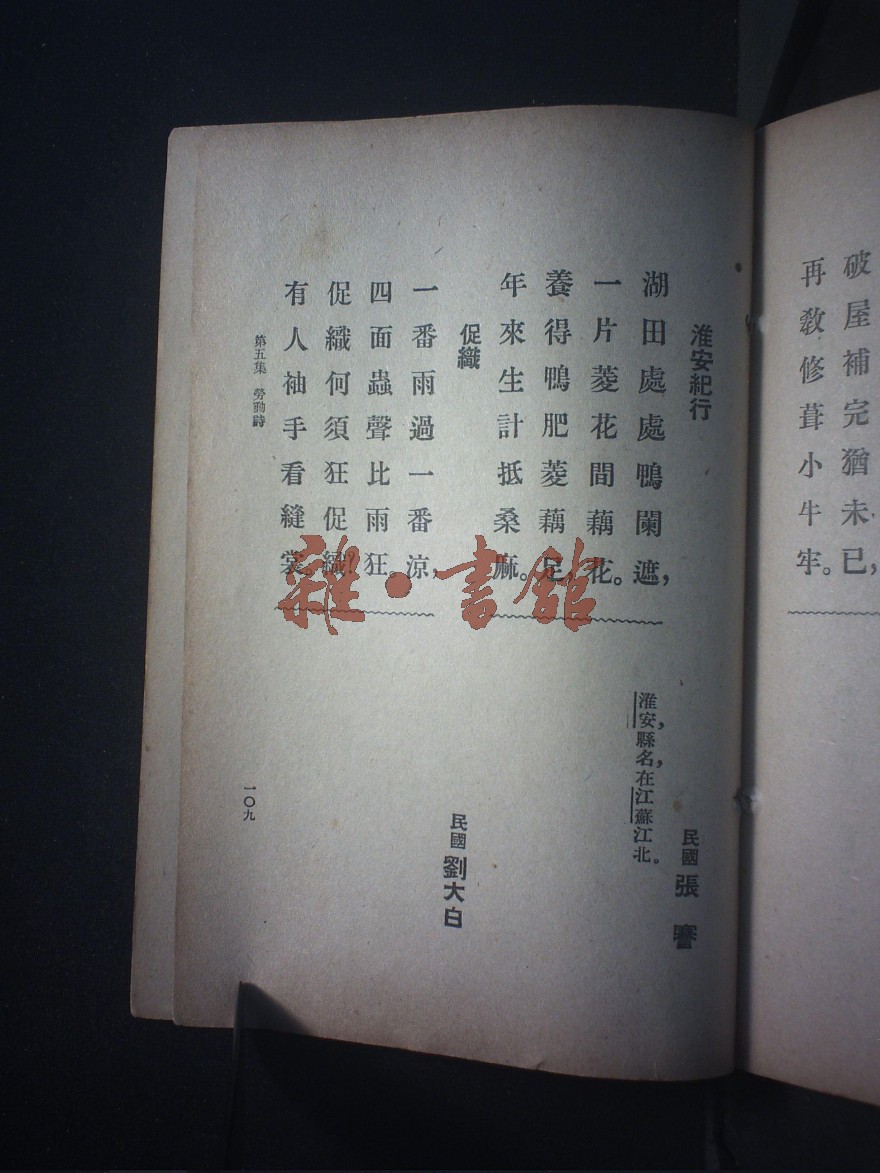 破屋補完猶未已，
再敎修葺小牛牢。
淮安紀行
民國 張謇
湖田處處鴨闌遮，
一片菱花間藕花。
養得鴨肥菱藕足，
年來生計抵桑麻。
淮安，縣名，在江蘇江北。
促織
民國 劉大白
一番雨過一番涼，
四面蟲聲比雨狂。
促織何須狂促織？
有人袖手看縫裳。
第五集 勞動詩
一〇九
雜·書館